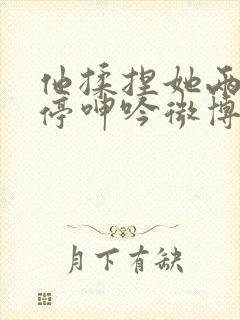 他揉捏她两
停呻吟微博
月下有缺